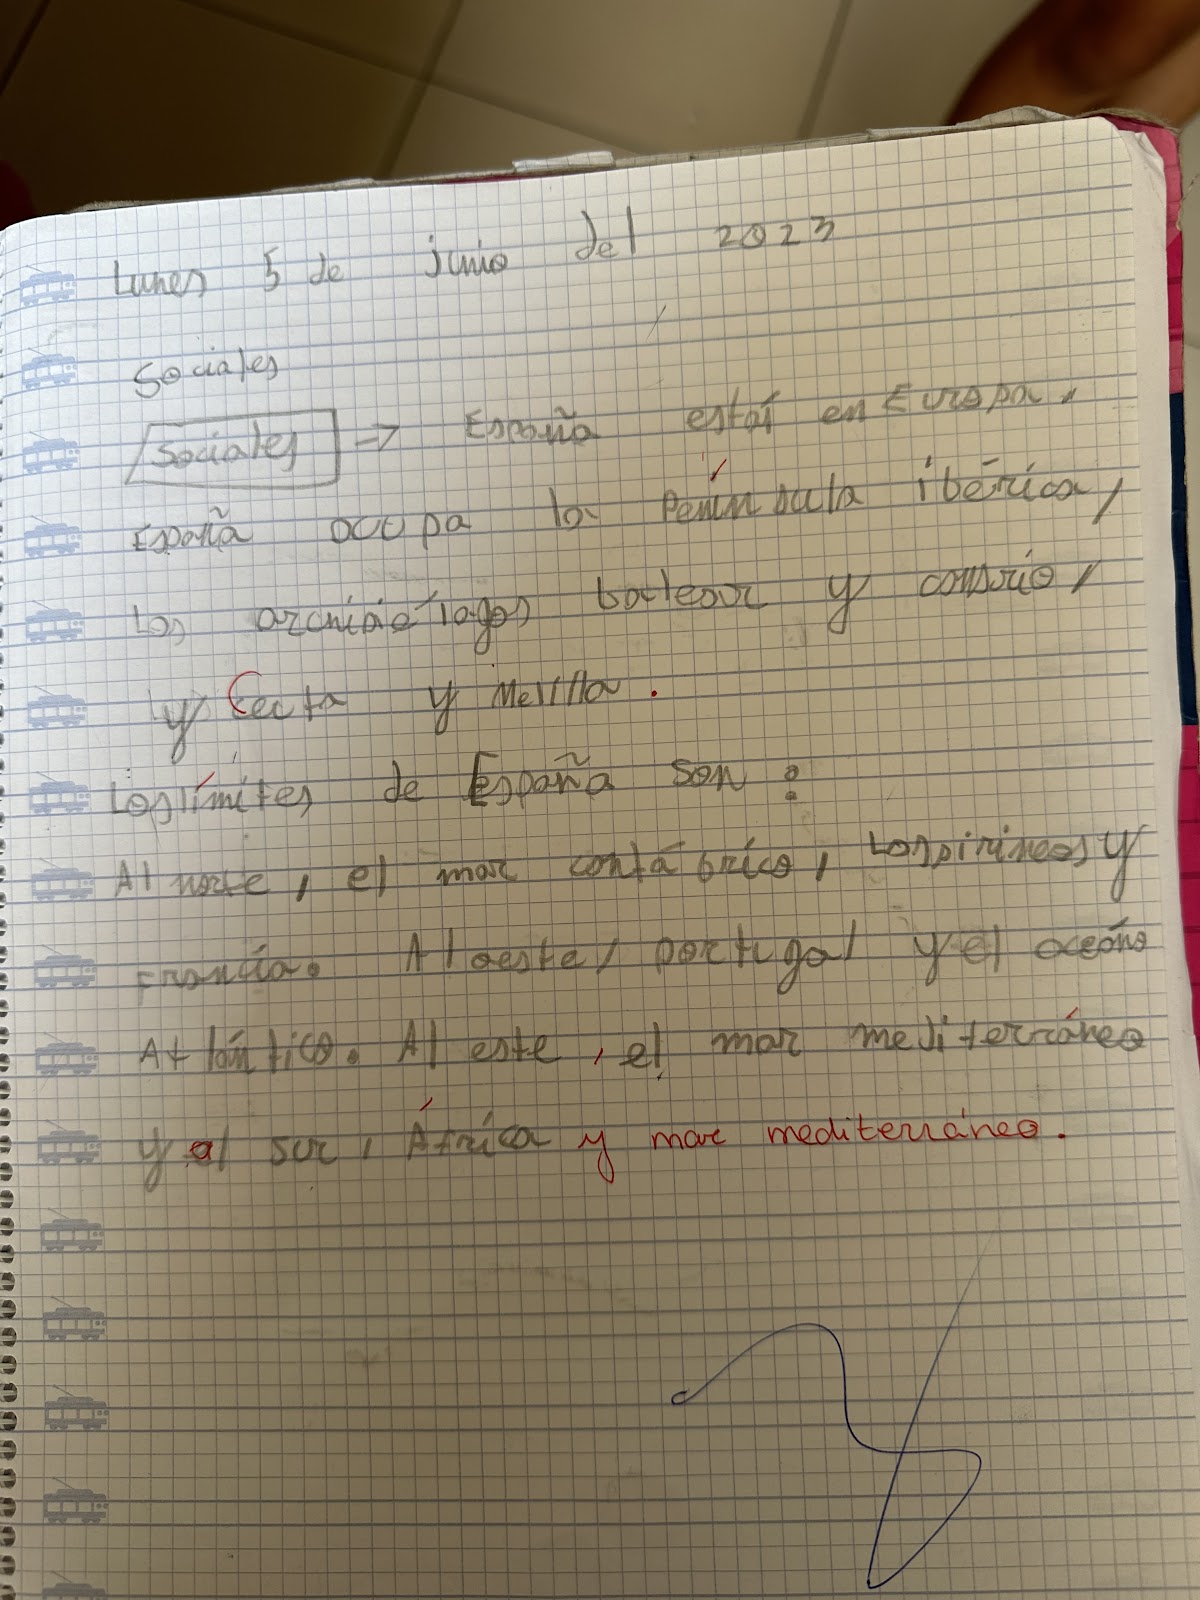 Lunes 5 de junio del 2023
Sociales
Sociales → España está en Europa.
España ocupa la Península ibérica,
los archipiélagos balear y canario,
y Ceuta y Melilla.
Los límites de España son:
Al norte, el mar contábrico, Los pirineos y
Francia. Al oeste, portugal y el oceáno
Atlántico. Al este, el mar mediterráneo
y al sur, África y mar mediterráneo.